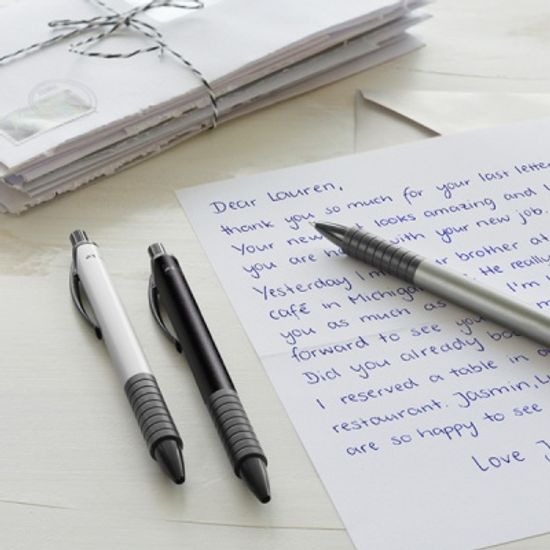 Dear Lauren,
thank you so much for your last letter
Your new looks amazing and I
you are ha with your new job.
Yesterday I m r brother at
café in Michiga He really
you as much as I'm
forward to see you
Did you already bo
I reserved a table in a
restaurant. Jasmin, L
are so happy to see
Love J